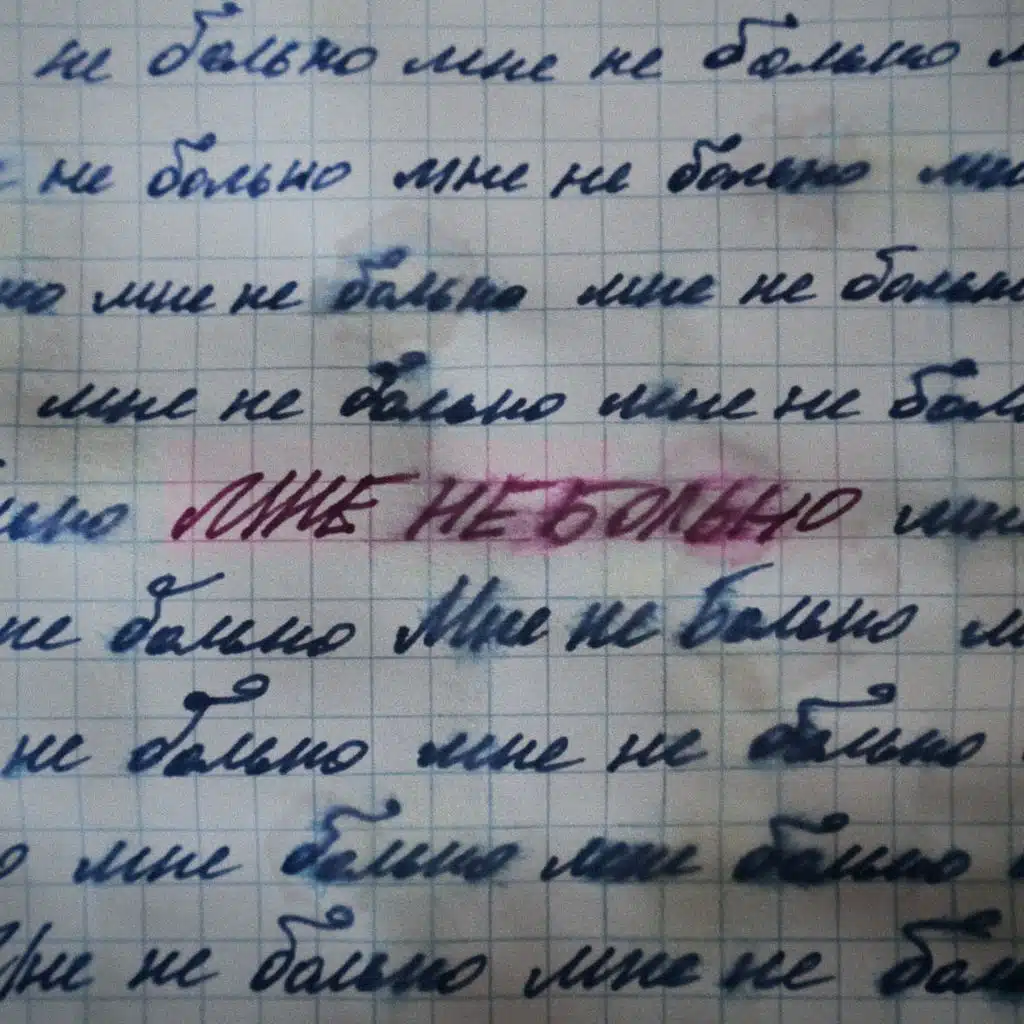 не больно мне не больно
не больно мне не больно мне
мне не больно мне не больно
мне не больно мне не бол
МНЕ НЕ БОЛЬНО мне
не больно Мне не больно
не больно мне не больно
мне больно мне больно
Мне не больно мне не бол